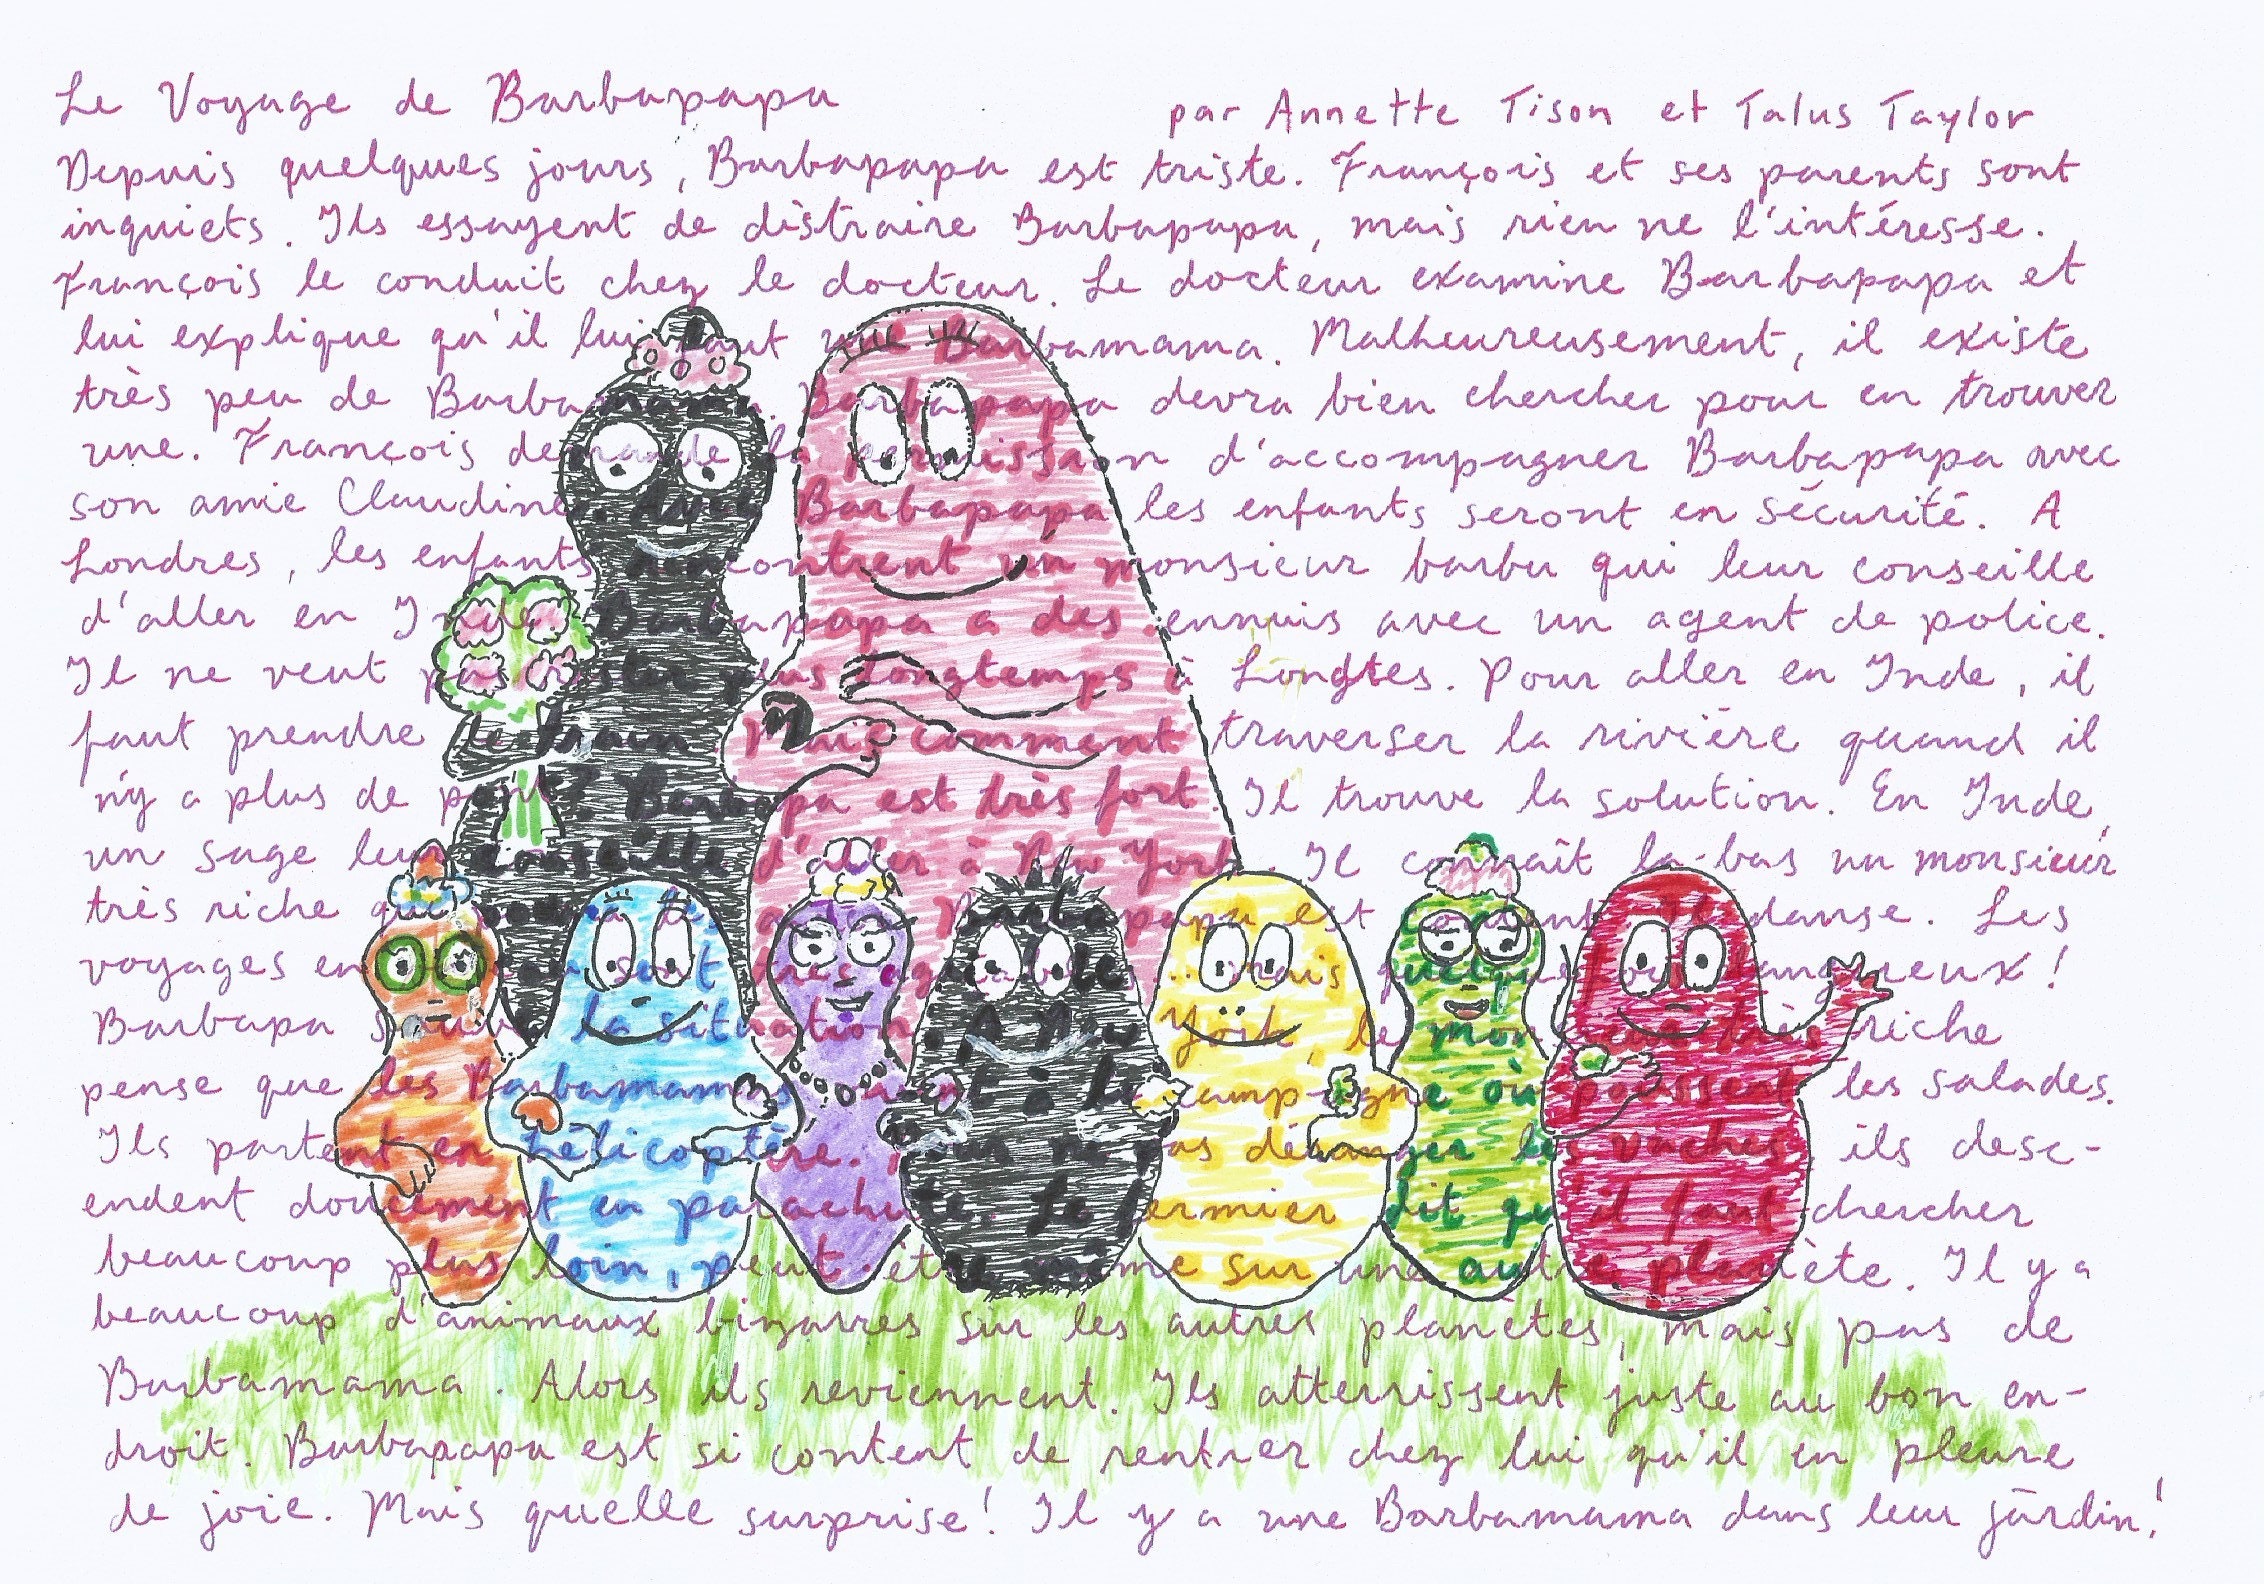 Le Voyage de Barbapapa par Annette Tison et Talus Taylor
Depuis quelques jours, Barbapapa est triste. François et ses parents sont
inquiets. Ils essayent de distraire Barbapapa, mais rien ne l'intéresse.
François le conduit chez le docteur. Le docteur examine Barbapapa et
lui explique qu'il lui faut une Barbamama. Malheureusement, il existe
très peu de Barbamama. Barbapapa devra bien chercher pour en trouver
une. François demande la permission d'accompagner Barbapapa avec
son amie Claudine. Avec Barbapapa les enfants seront en sécurité. A
Londres, les enfants rencontrent un monsieur barbu qui leur conseille
d'aller en Inde. Barbapapa a des ennuis avec un agent de police.
Il ne veut pas rester plus longtemps à Londres. Pour aller en Inde, il
faut prendre le train. Mais comment traverser la rivière quand il
n'y a plus de pont? Barbapa est très fort. Il trouve la solution. En Inde,
un sage leur conseille d'aller à New York. Il connaît la-bas un monsieur
très riche qui Barbapapa est content. Il danse. Les
voyages en sont très agréables... mais quelquefois dangereux!
Barbapa sauve la situation. A New York, le monsieur très riche
pense que les Barbamamas vivent à la campagne où poussent les salades.
Ils partent en hélicoptère. Pour ne pas déranger les vaches, ils desc-
endent doucement en parachute. Le fermier dit qu'il faut chercher
beaucoup plus loin, peut-être même sur une autre planète. Il y a
beaucoup d'animaux bizarres sur les autres planètes, mais pas de
Barbamama. Alors ils reviennent. Ils atterrissent juste au bon en-
droit. Barbapapa est si content de rentrer chez lui qu'il en pleure
de joie. Mais quelle surprise! Il y a une Barbamama dans leur jardin!